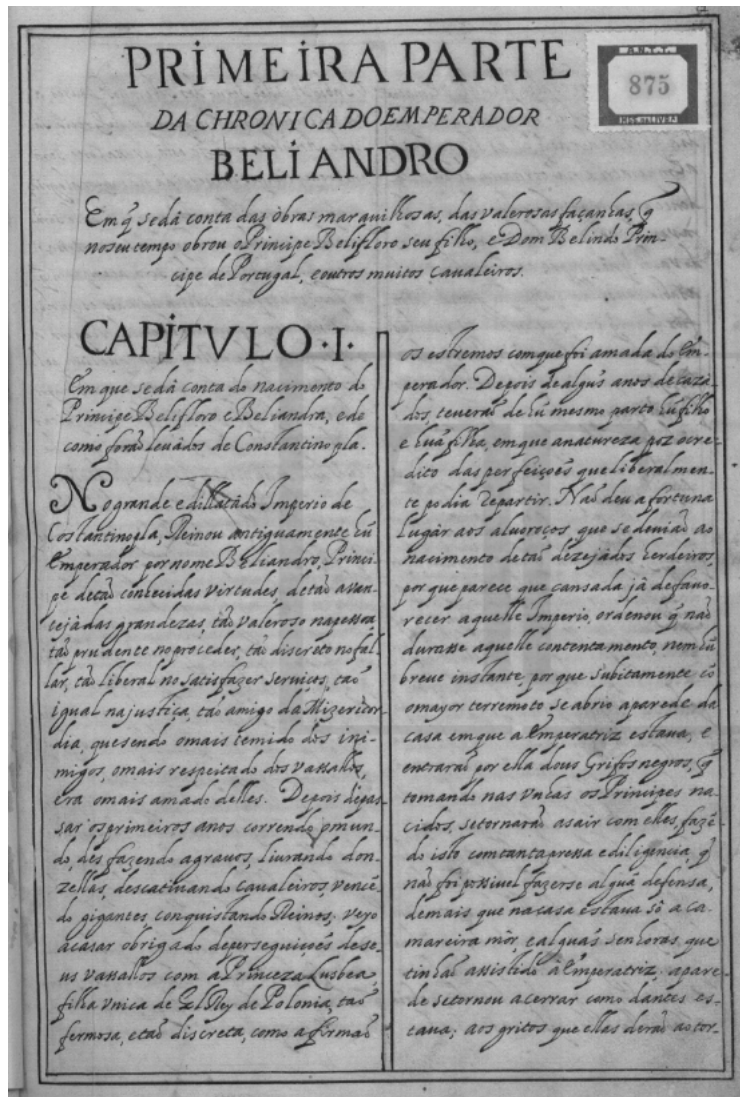 PRIMEIRA PARTE
DA CHRONICA DO EMPERADOR
BELIANDRO
875
Em q̃ se dá conta das obras marauilhosas, das valerosas façanhas, q̃
no seu tempo obrou o Principe Belifloro seu filho, e Dom Belindo Prin-
cipe de Portugal, e outros muitos Caualeiros.
CAPITVLO · I ·
Em que se dá conta do nacimento do
Principe Belifloro e Beliandra, e de
como forão leuádos de Constantinopla.
No grande e dillatádo Imperio de
Costantinopla, Reinou antiguamente hũ
Emperador por nome Beliandro, Princi-
pe de tão conhecidas virtudes, de tão auan-
cejádas grandezas, tão valeroso na pessoa
tão prudente no proceder, tão discreto no fal-
lar, tão liberal no satisfazer seruiços, tão
igual na justiça, tão amigo da Mizericor-
dia, que sendo o mais temido dos ini-
migos, o mais respeitado dos vassallos,
era o mais amado delles. Depois de pas-
sar os primeiros anos correndo o mun-
do, des fazendo agrauos, liurando don-
zellas, descatiuando caualeiros, vencẽ-
do gigantes, conquistando Reinos; veyo
a casar obrigado de perseguições de se-
us vassallos com a Princeza Lusbea,
filha vnica de El Rey de Polonia, tão
fermosa, e tão discreta, como a firmão
os estremos com que foi amada do Em-
perador. Depois de algũs anos de caza-
dos, teuerão de hũ mesmo parto hũ filho
e hũa filha, em que a natureza poz o cre-
dito das perfeições que liberalmen-
te podia repartir. Não deu a fortuna
lugár aos aluoroços que se deuião ao
nacimento de tão dezejádos herdeiros,
por que parece que cansada já de fauo-
recer aquelle Imperio, ordenou q̃ não
durasse aquelle contentamento, nem hũ
breve instante, por que subitamente cõ
o mayor terremoto se abrio a parede da
casa em que a Emperatriz estaua, e
entrarão por ella dous Grifos negros, q̃
tomando nas vnhas os Principes na-
cidos, se tornarão a sair com elles, fazẽ-
do isto com tanta pressa e diligencia, q̃
não foi possiuel fazerse algũa defensa,
demais que na casa estaua só a ca-
mareira mór, e algũas senhoras, que
tinhão assistido á Emperatriz; a pare-
de se tornou a cerrar como dantes es-
taua; aos gritos que ellas derão ao tor-